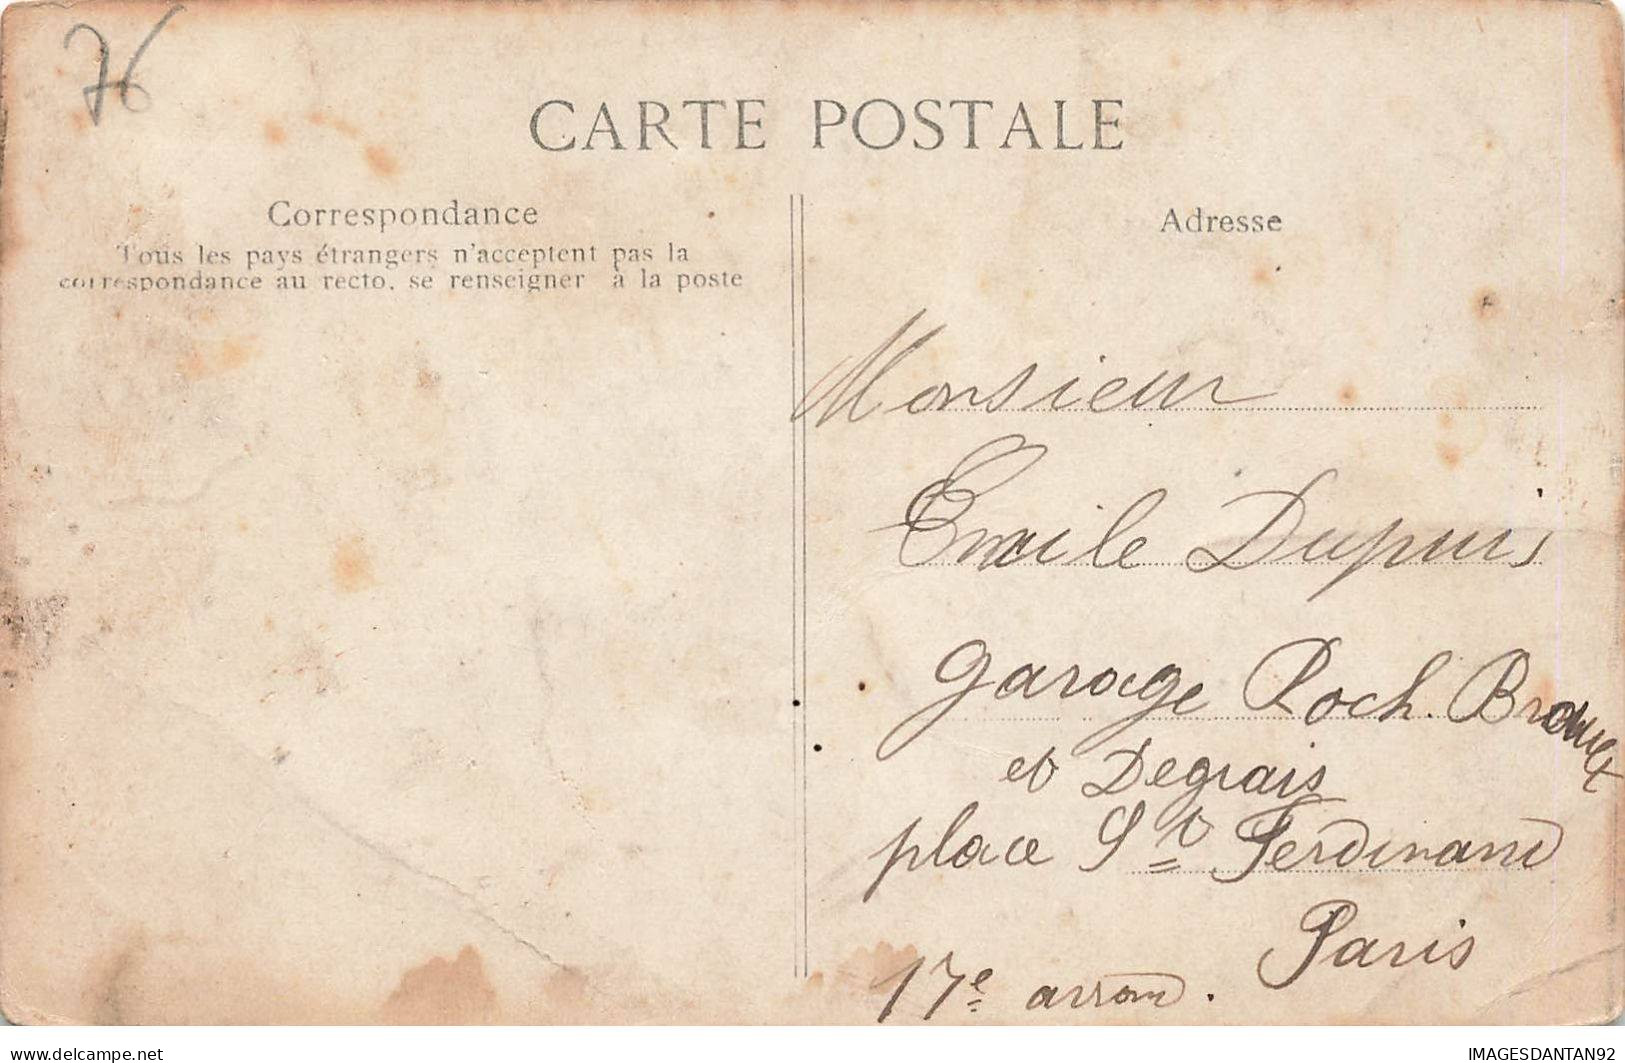 76
CARTE POSTALE
Correspondance
Tous les pays étrangers n'acceptent pas la
correspondance au recto, se renseigner à la poste
Adresse
Monsieur
Emile Dupuis
garage Roch. Brault
et Degrais
place St Ferdinand
Paris
17e arrond.
delcampe.net
IMAGESDANTAN92